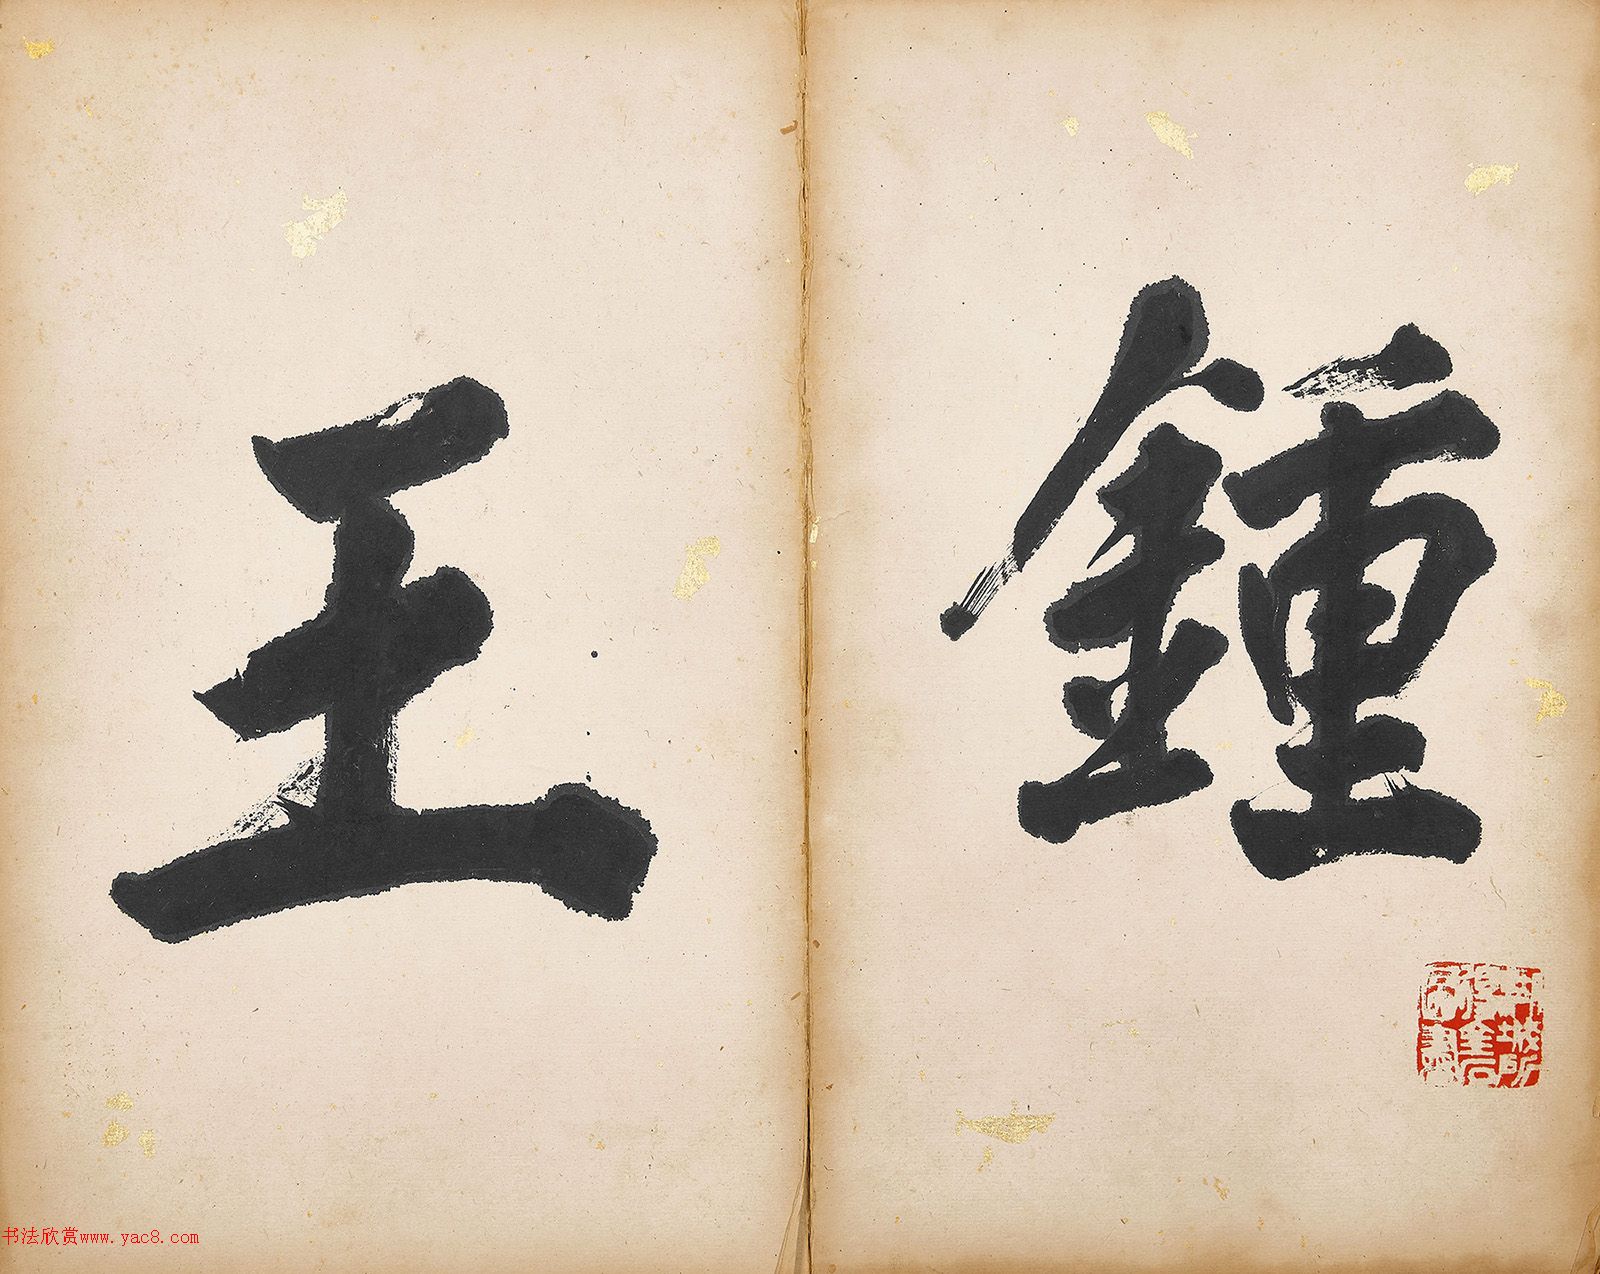 鍾
王
书法欣赏www.yac8.com